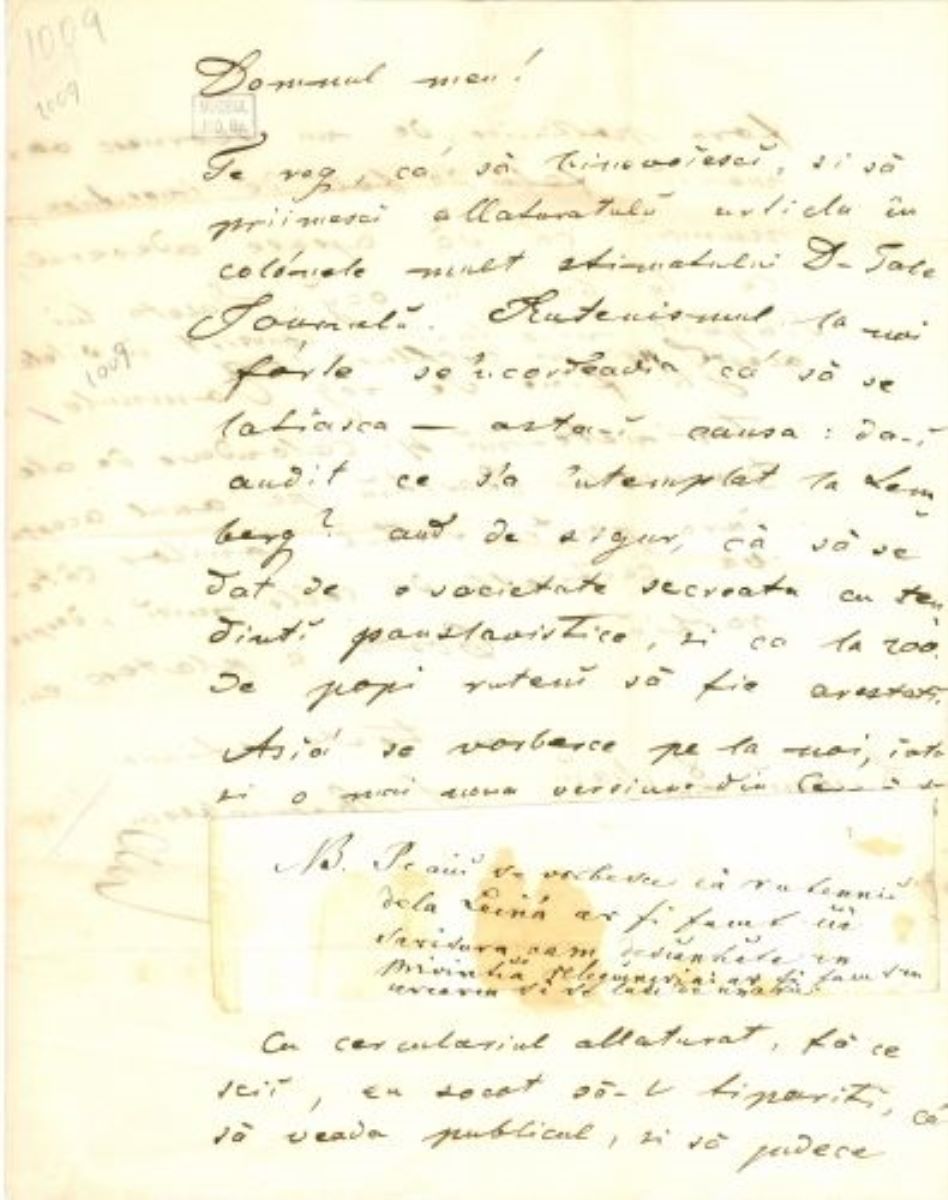 1009
2009
Domnul meu!
Te rog, că să binevoiesci, si să
priimesci allaturatulŭ articlu în
colónele mult stimatului D-Tale
Jóurnalŭ. Rutenismul la noi
fórte se'ncordeadia că să se
latiasca — asta-i causa: da-i
1009
audit ce s'a intemplat la Lem
berg? aud de sigur, că să se
dat de o societate secreata cu ten
dinti panslavistice, si ca la 200.
de popi ruteni să fie arestati.
Asiá se vorbesce pe la noi, iata
si o mai noua versiune din
NB. Pe aici se vorbesce că rutenniĭ
dela ar fi facut
cam in
privintia ar fi facut
si
Cu cerculariul allaturat, fă ce
scii, eu socot să-l tipariti, că
să veada publicul, si să judece